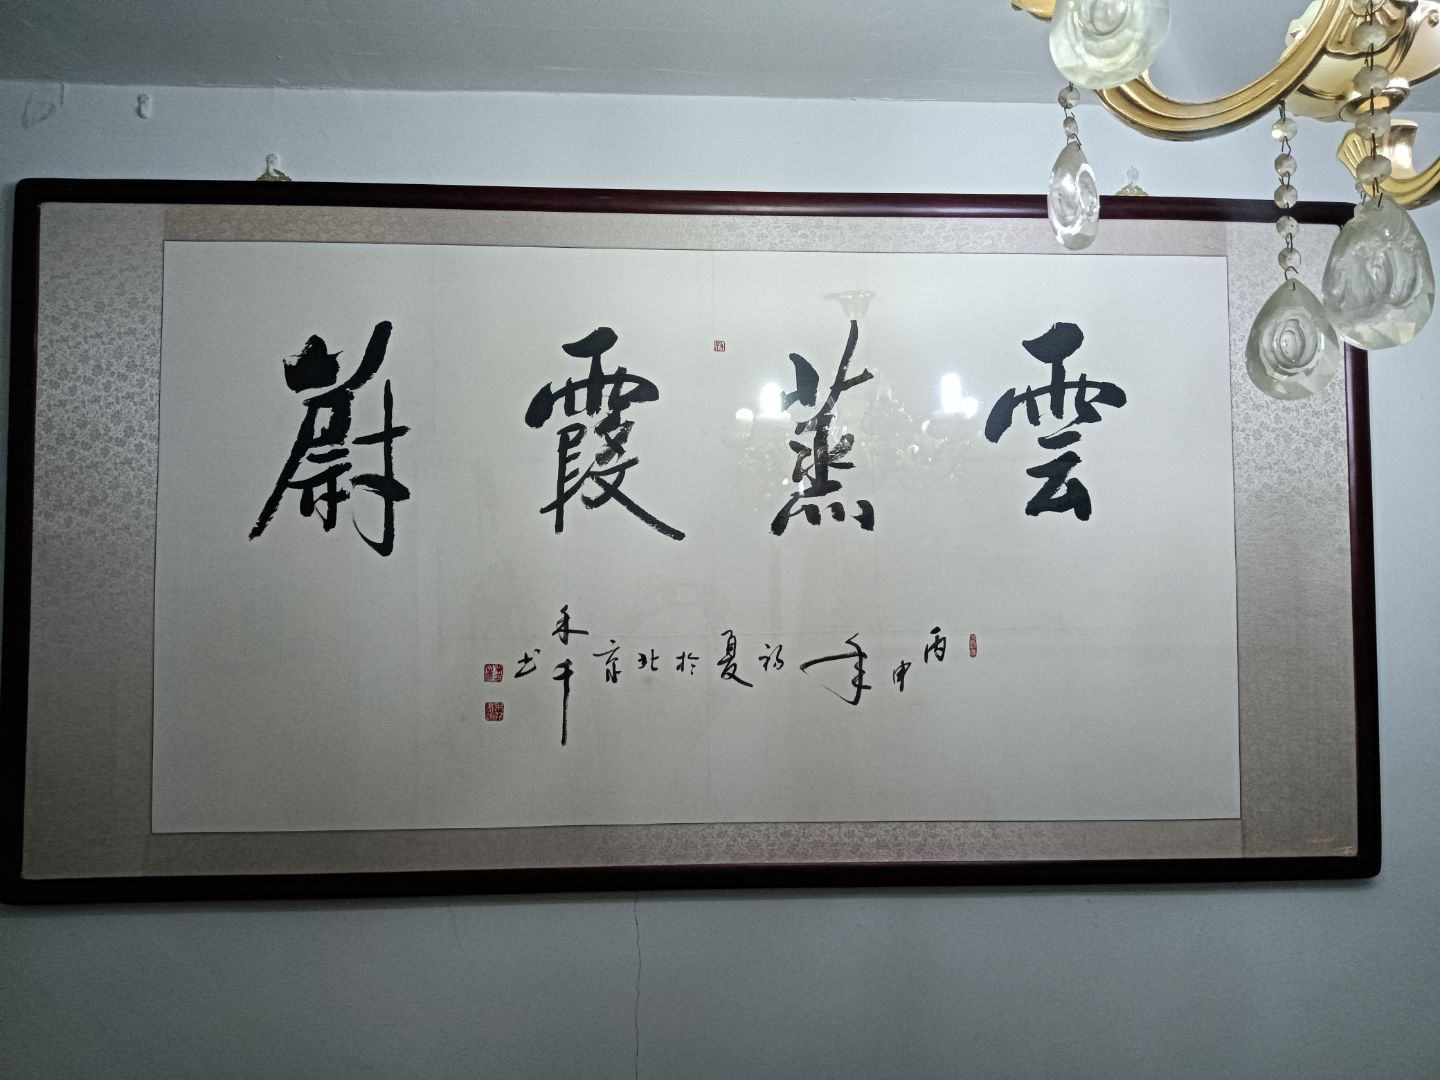 雲蒸霞蔚
丙申年初夏於北京
書